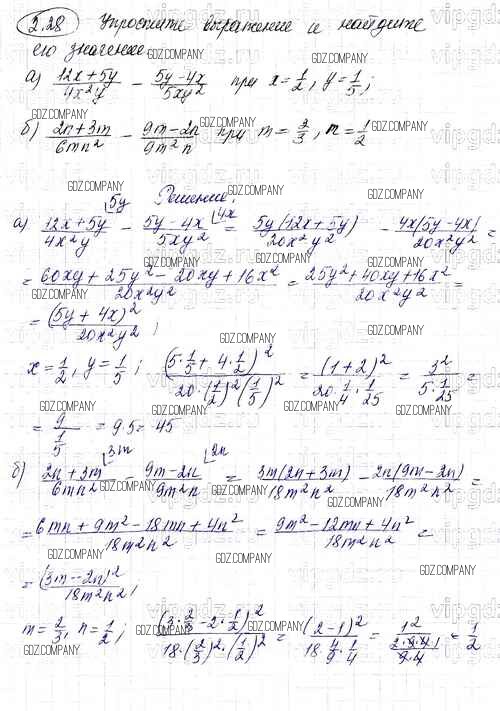 2.28 Упростите выражение и найдите
его значение.
а) (12x+5y)/(4x²y) − (5y−4x)/(5xy²) при x=1/2, y=1/5;
б) (2n+3m)/(6mn²) − (9m−2n)/(9m²n) при m=2/3, n=1/2
Решение:
а) (12x+5y)/(4x²y) ⌊5y − (5y−4x)/(5xy²) ⌊4x = 5y(12x+5y)/(20x²y²) − 4x(5y−4x)/(20x²y²) =
= (60xy+25y²−20xy+16x²)/(20x²y²) = (25y²+40xy+16x²)/(20x²y²) =
= (5y+4x)²/(20x²y²);
x=1/2, y=1/5; (5·1/5+4·1/2)²/(20·(1/2)²(1/5)²) = (1+2)²/(20·1/4·1/25) = 3²/(5·1/25) =
= 9/(1/5) = 9·5=45
б) (2n+3m)/(6mn²) ⌊3m − (9m−2n)/(9m²n) ⌊2n = 3m(2n+3m)/(18m²n²) − 2n(9m−2n)/(18m²n²) =
= (6mn+9m²−18mn+4n²)/(18m²n²) = (9m²−12mn+4n²)/(18m²n²) =
= (3m−2n)²/(18m²n²);
m=2/3, n=1/2; (3·2/3−2·1/2)²/(18·(2/3)²·(1/2)²) = (2−1)²/(18·4/9·1/4) = 1²/((2·9·4·1)/(9·4)) = 1/2
GDZ.COMPANY
vipgdz.com